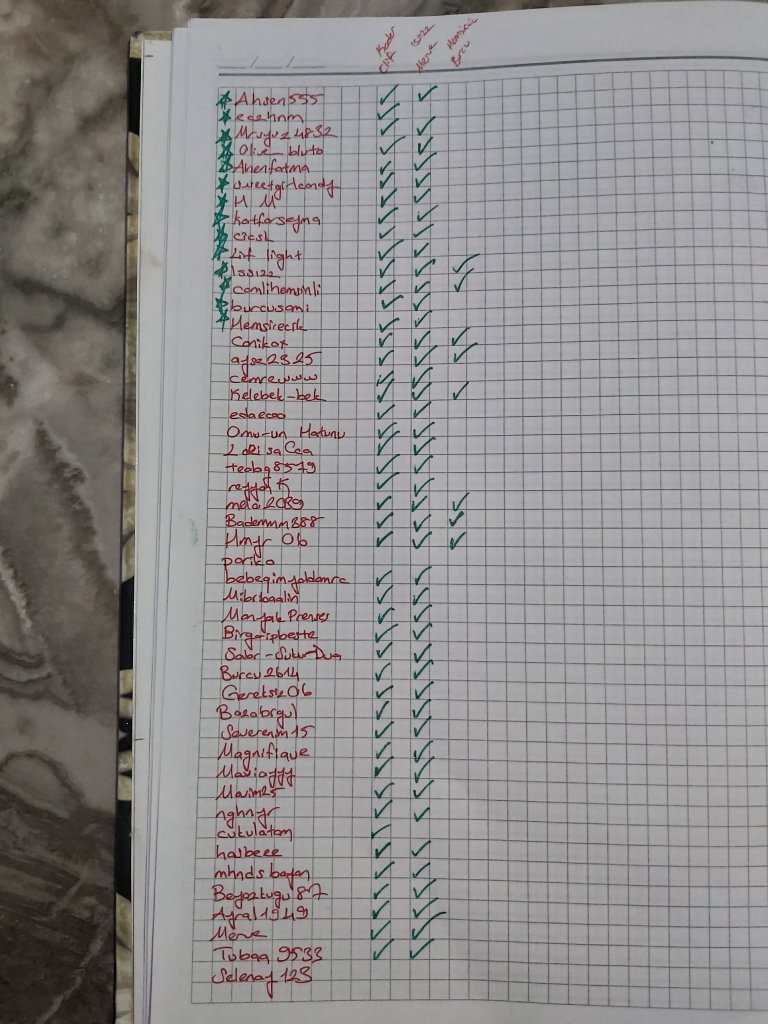 Kader Elif
Isızz Merve
Hemsirecik Burcu
Ahsen555
edahnm
Mrvyvz4832
Olive-bluto
Ahenfatma
sweetgirlcandy
M M
katforsejma
cicesk
Lit light
Isızz
camlihemsinli
burcusami
Hemsirecik
Canikox
ayse2325
cemrewww
Kelebek-bek
edaecoo
Omu-un Hatunu
teoloq8579
reyyan K
mela2089
Bademmm388
Hmyr 06
pariko
bebegimyoldanrc
Mibribaalin
Manyak Prenses
Birgaripbeste
Sabır-Sukur-Dua
Burcu2614
Gereksiz06
Bazabrgul
Severenm15
Magnifique
Maviayyy
Mavim25
nghnyr
cukulatam
halbeee
mhnds bayan
Beyazkugu87
Ayral1949
Merve
Tubaa 9533
Selenay 123